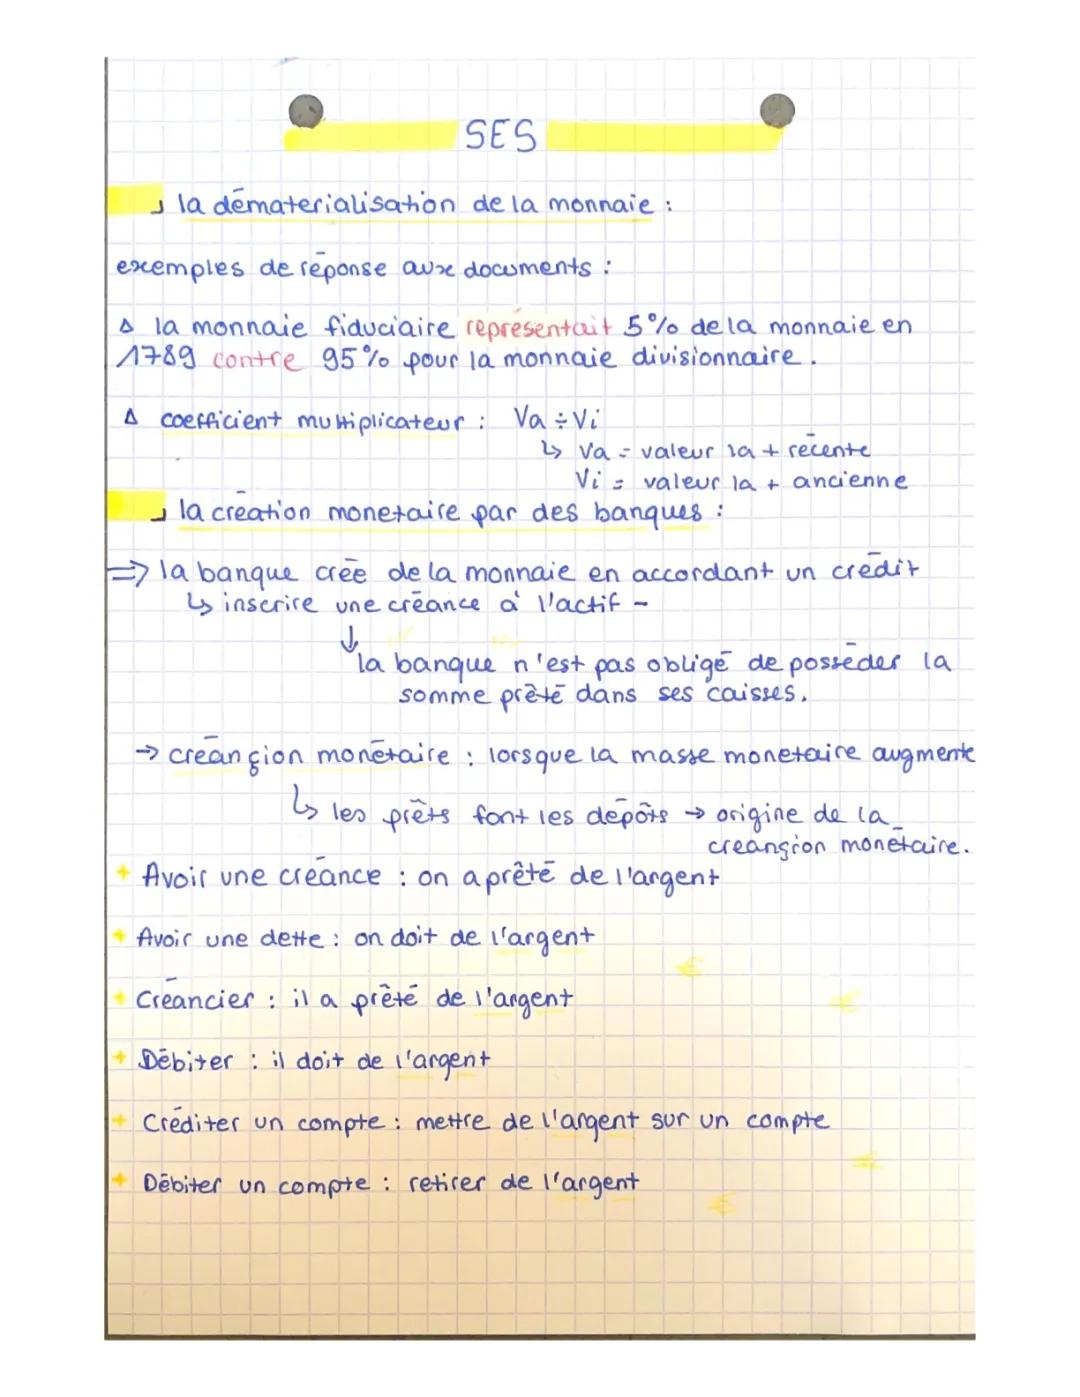 SES
la dématerialisation de la monnaie :
exemples de réponse aux documents :
Δ la monnaie fiduciaire représentait 5% de la monnaie en
1789 contre 95% pour la monnaie divisionnaire.
Δ coefficient multiplicateur : Va ÷ Vi
↳ Va = valeur la + récente
Vi = valeur la + ancienne
la création monetaire par des banques :
⇒ la banque crée de la monnaie en accordant un crédit
↳ inscrire une créance à l'actif -
↓
la banque n'est pas obligé de posséder la
somme prêté dans ses caisses.
→ créançion monétaire : lorsque la masse monetaire augmente
↳ les prêts font les dépôts → origine de la
creançion monétaire.
+ Avoir une créance : on a prêté de l'argent
+ Avoir une dette : on doit de l'argent
+ Créancier : il a prêté de l'argent
+ Débiter : il doit de l'argent
+ Créditer un compte : mettre de l'argent sur un compte
+ Débiter un compte : retirer de l'argent